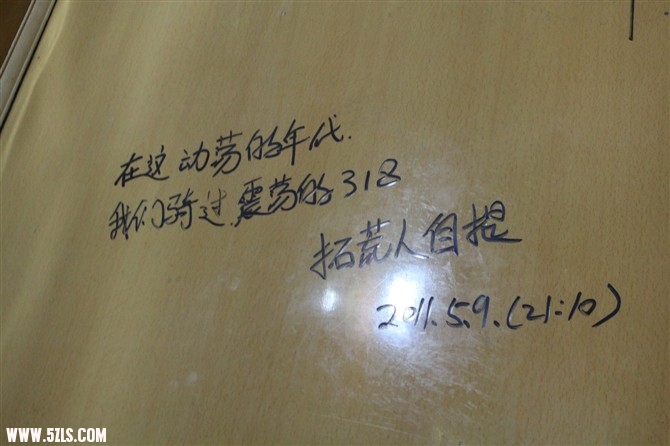 在这动荡的年代.
我们骑过震荡的318
拓荒人自提
2011.5.9.(21:10)
WWW.5ZLS.COM